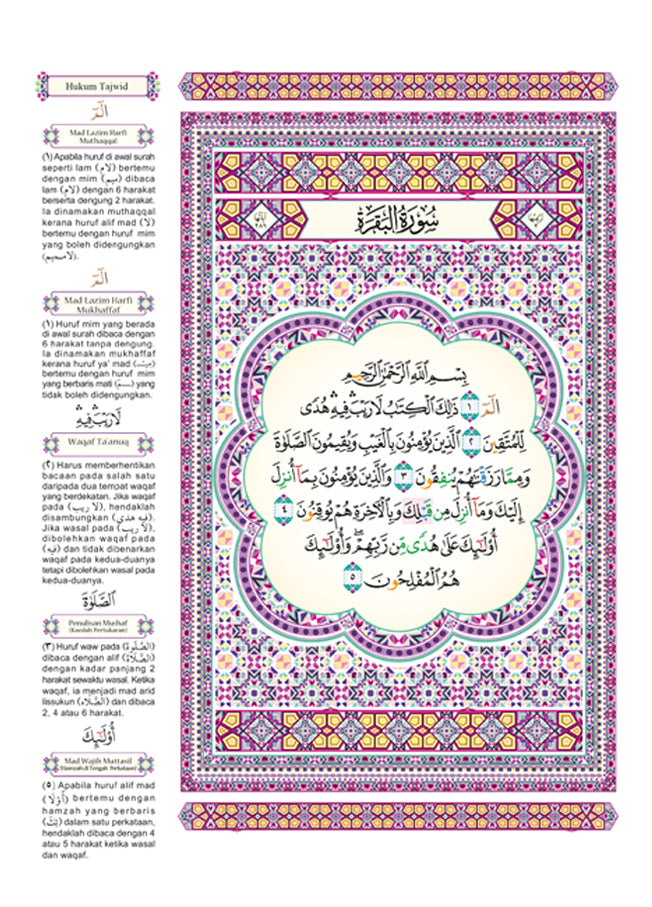 Hukum Tajwid
الٓمٓ
Mad Lazim Harfi
Muthaqqal
(١) Apabila huruf di awal surah
seperti lam (لام) bertemu
dengan mim (ميم) dibaca
lam (لام) dengan 6 harakat
berserta dengung 2 harakat.
Ia dinamakan muthaqqal
kerana huruf alif mad (لا)
bertemu dengan huruf mim
yang boleh didengungkan
الٓمٓ
Mad Lazim Harfi
Mukhaffaf
(١) Huruf mim yang berada
di awal surah dibaca dengan
6 harakat tanpa dengung.
Ia dinamakan mukhaffaf
kerana huruf ya' mad
bertemu dengan huruf mim
yang berbaris mati yang
tidak boleh didengungkan.
لَا رَيْبَ ۛ فِيهِ ۛ
Waqaf Ta'anuq
(٢) Harus memberhentikan
bacaan pada salah satu
daripada dua tempat waqaf
yang berdekatan. Jika waqaf
pada (لا ريب), hendaklah
disambungkan (فيه هدى).
Jika wasal pada (لا ريب),
dibolehkan waqaf pada
(فيه) dan tidak dibenarkan
waqaf pada kedua-duanya
tetapi dibolehkan wasal pada
kedua-duanya.
الصَّلَوٰةَ
Penulisan Mushaf
(Kaedah Pertukaran)
(٣) Huruf waw pada (الصَّلَوٰة)
dibaca dengan alif (الصَّلَاة)
dengan kadar panjang 2
harakat sewaktu wasal. Ketika
waqaf, ia menjadi mad arid
lissukun (الصَّلَاه) dan dibaca
2, 4 atau 6 harakat.
أُو۟لَٰٓئِكَ
Mad Wajib Muttasil
(Hamzah di Tengah Perkataan)
(٥) Apabila huruf alif mad
(أُوْلَا) bertemu dengan
hamzah yang berbaris
(ئِكَ) dalam satu perkataan,
hendaklah dibaca dengan 4
atau 5 harakat ketika wasal
dan waqaf.
سُورَةُ البَقَرَةِ
بِسْمِ ٱللَّهِ ٱلرَّحْمَٰنِ ٱلرَّحِيمِ
الٓمٓ ١ ذَٰلِكَ ٱلْكِتَٰبُ لَا رَيْبَ ۛ فِيهِ ۛ هُدًى
لِّلْمُتَّقِينَ ٢ ٱلَّذِينَ يُؤْمِنُونَ بِٱلْغَيْبِ وَيُقِيمُونَ ٱلصَّلَوٰةَ
وَمِمَّا رَزَقْنَٰهُمْ يُنفِقُونَ ٣ وَٱلَّذِينَ يُؤْمِنُونَ بِمَآ أُنزِلَ
إِلَيْكَ وَمَآ أُنزِلَ مِن قَبْلِكَ وَبِٱلْءَاخِرَةِ هُمْ يُوقِنُونَ ٤
أُو۟لَٰٓئِكَ عَلَىٰ هُدًى مِّن رَّبِّهِمْ ۖ وَأُو۟لَٰٓئِكَ
هُمُ ٱلْمُفْلِحُونَ ٥